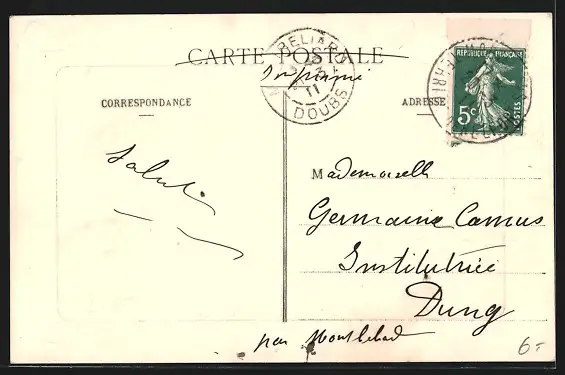 CARTE POSTALE
Imprimé
MONTBELIARD
11
DOUBS
REPUBLIQUE FRANÇAISE
5c
POSTES
CORRESPONDANCE
ADRESSE
Salut
Mademoiselle
Germaine Camus
Institutrice
Dung
par Montbeliard
6-